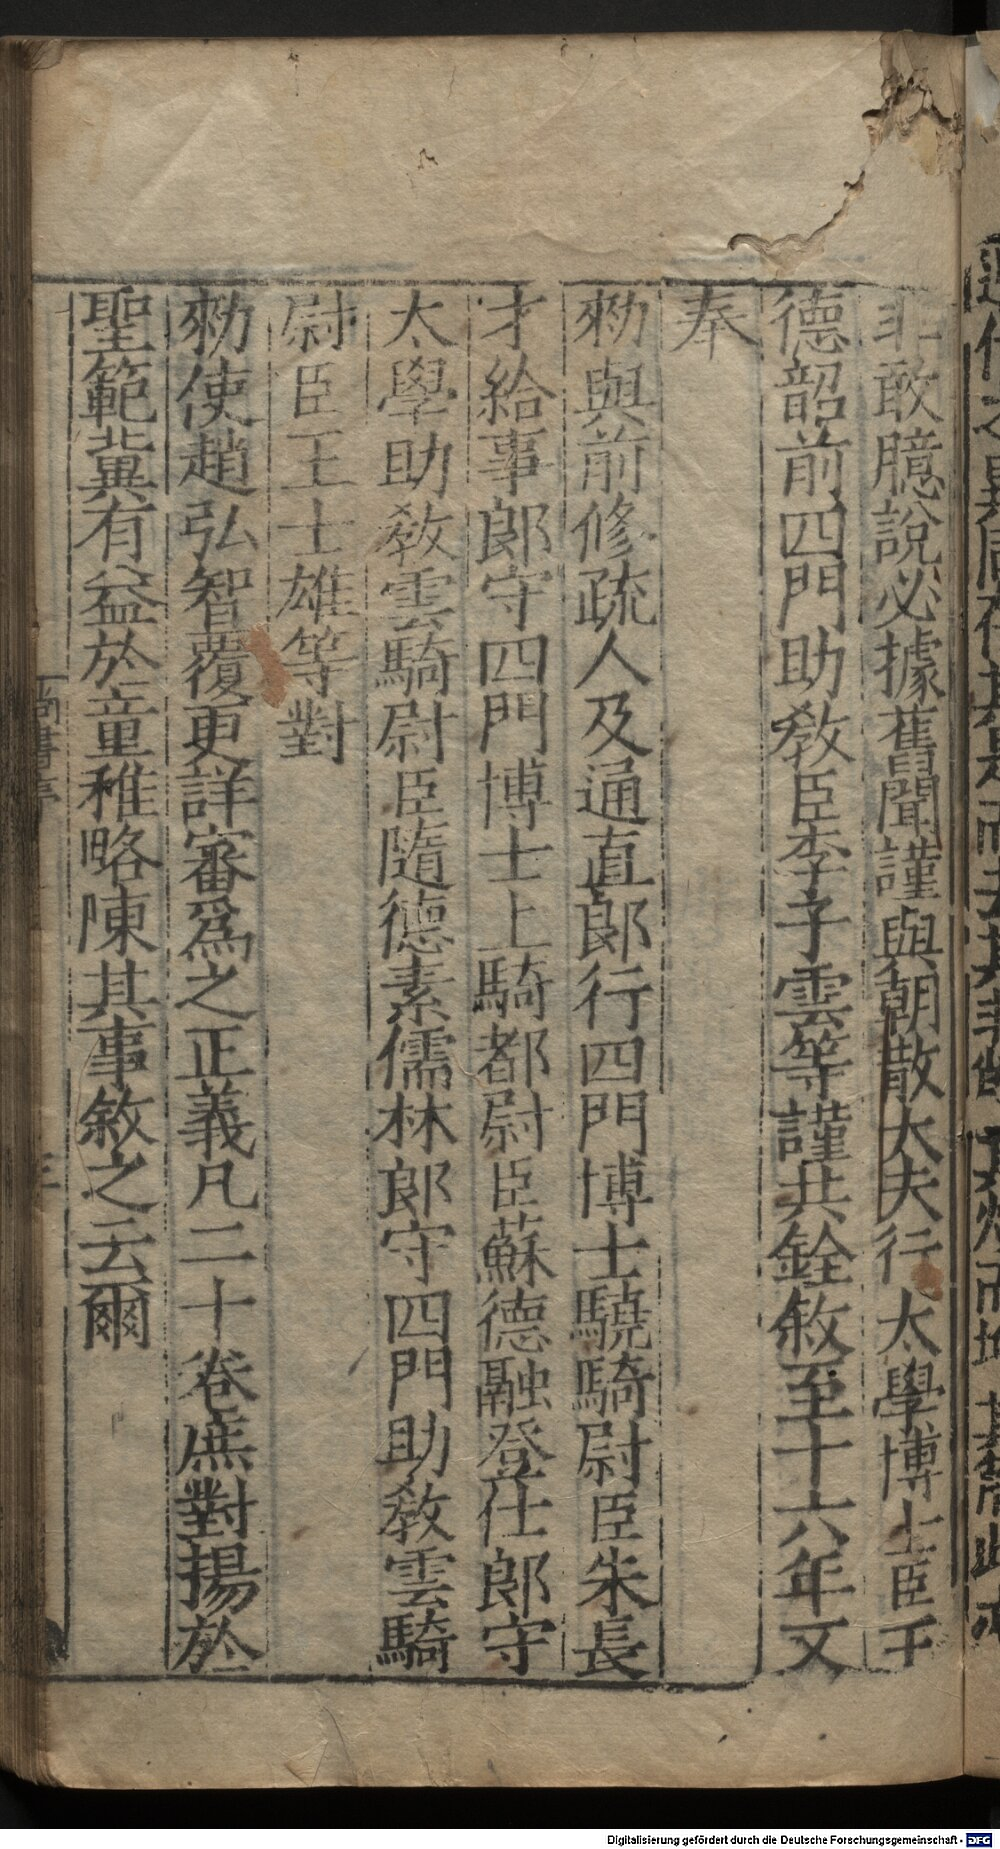 非敢臆說必據舊聞謹與朝散大夫行太學博士臣王
德韶前四門助敎臣李子雲等謹共銓敘至十六年又
奉
勑與前修疏人及通直郞行四門博士驍騎尉臣朱長
才給事郞守四門博士上騎都尉臣蘇德融登仕郞守
太學助敎雲騎尉臣隨德素儒林郞守四門助敎雲騎
尉臣王士雄等對
勑使趙弘智覆更詳審爲之正義凡二十卷庶對揚於
聖範冀有益於童稚略陳其事敘之云爾
尚書序
三
Digitalisierung gefördert durch die Deutsche Forschungsgemeinschaft - DFG